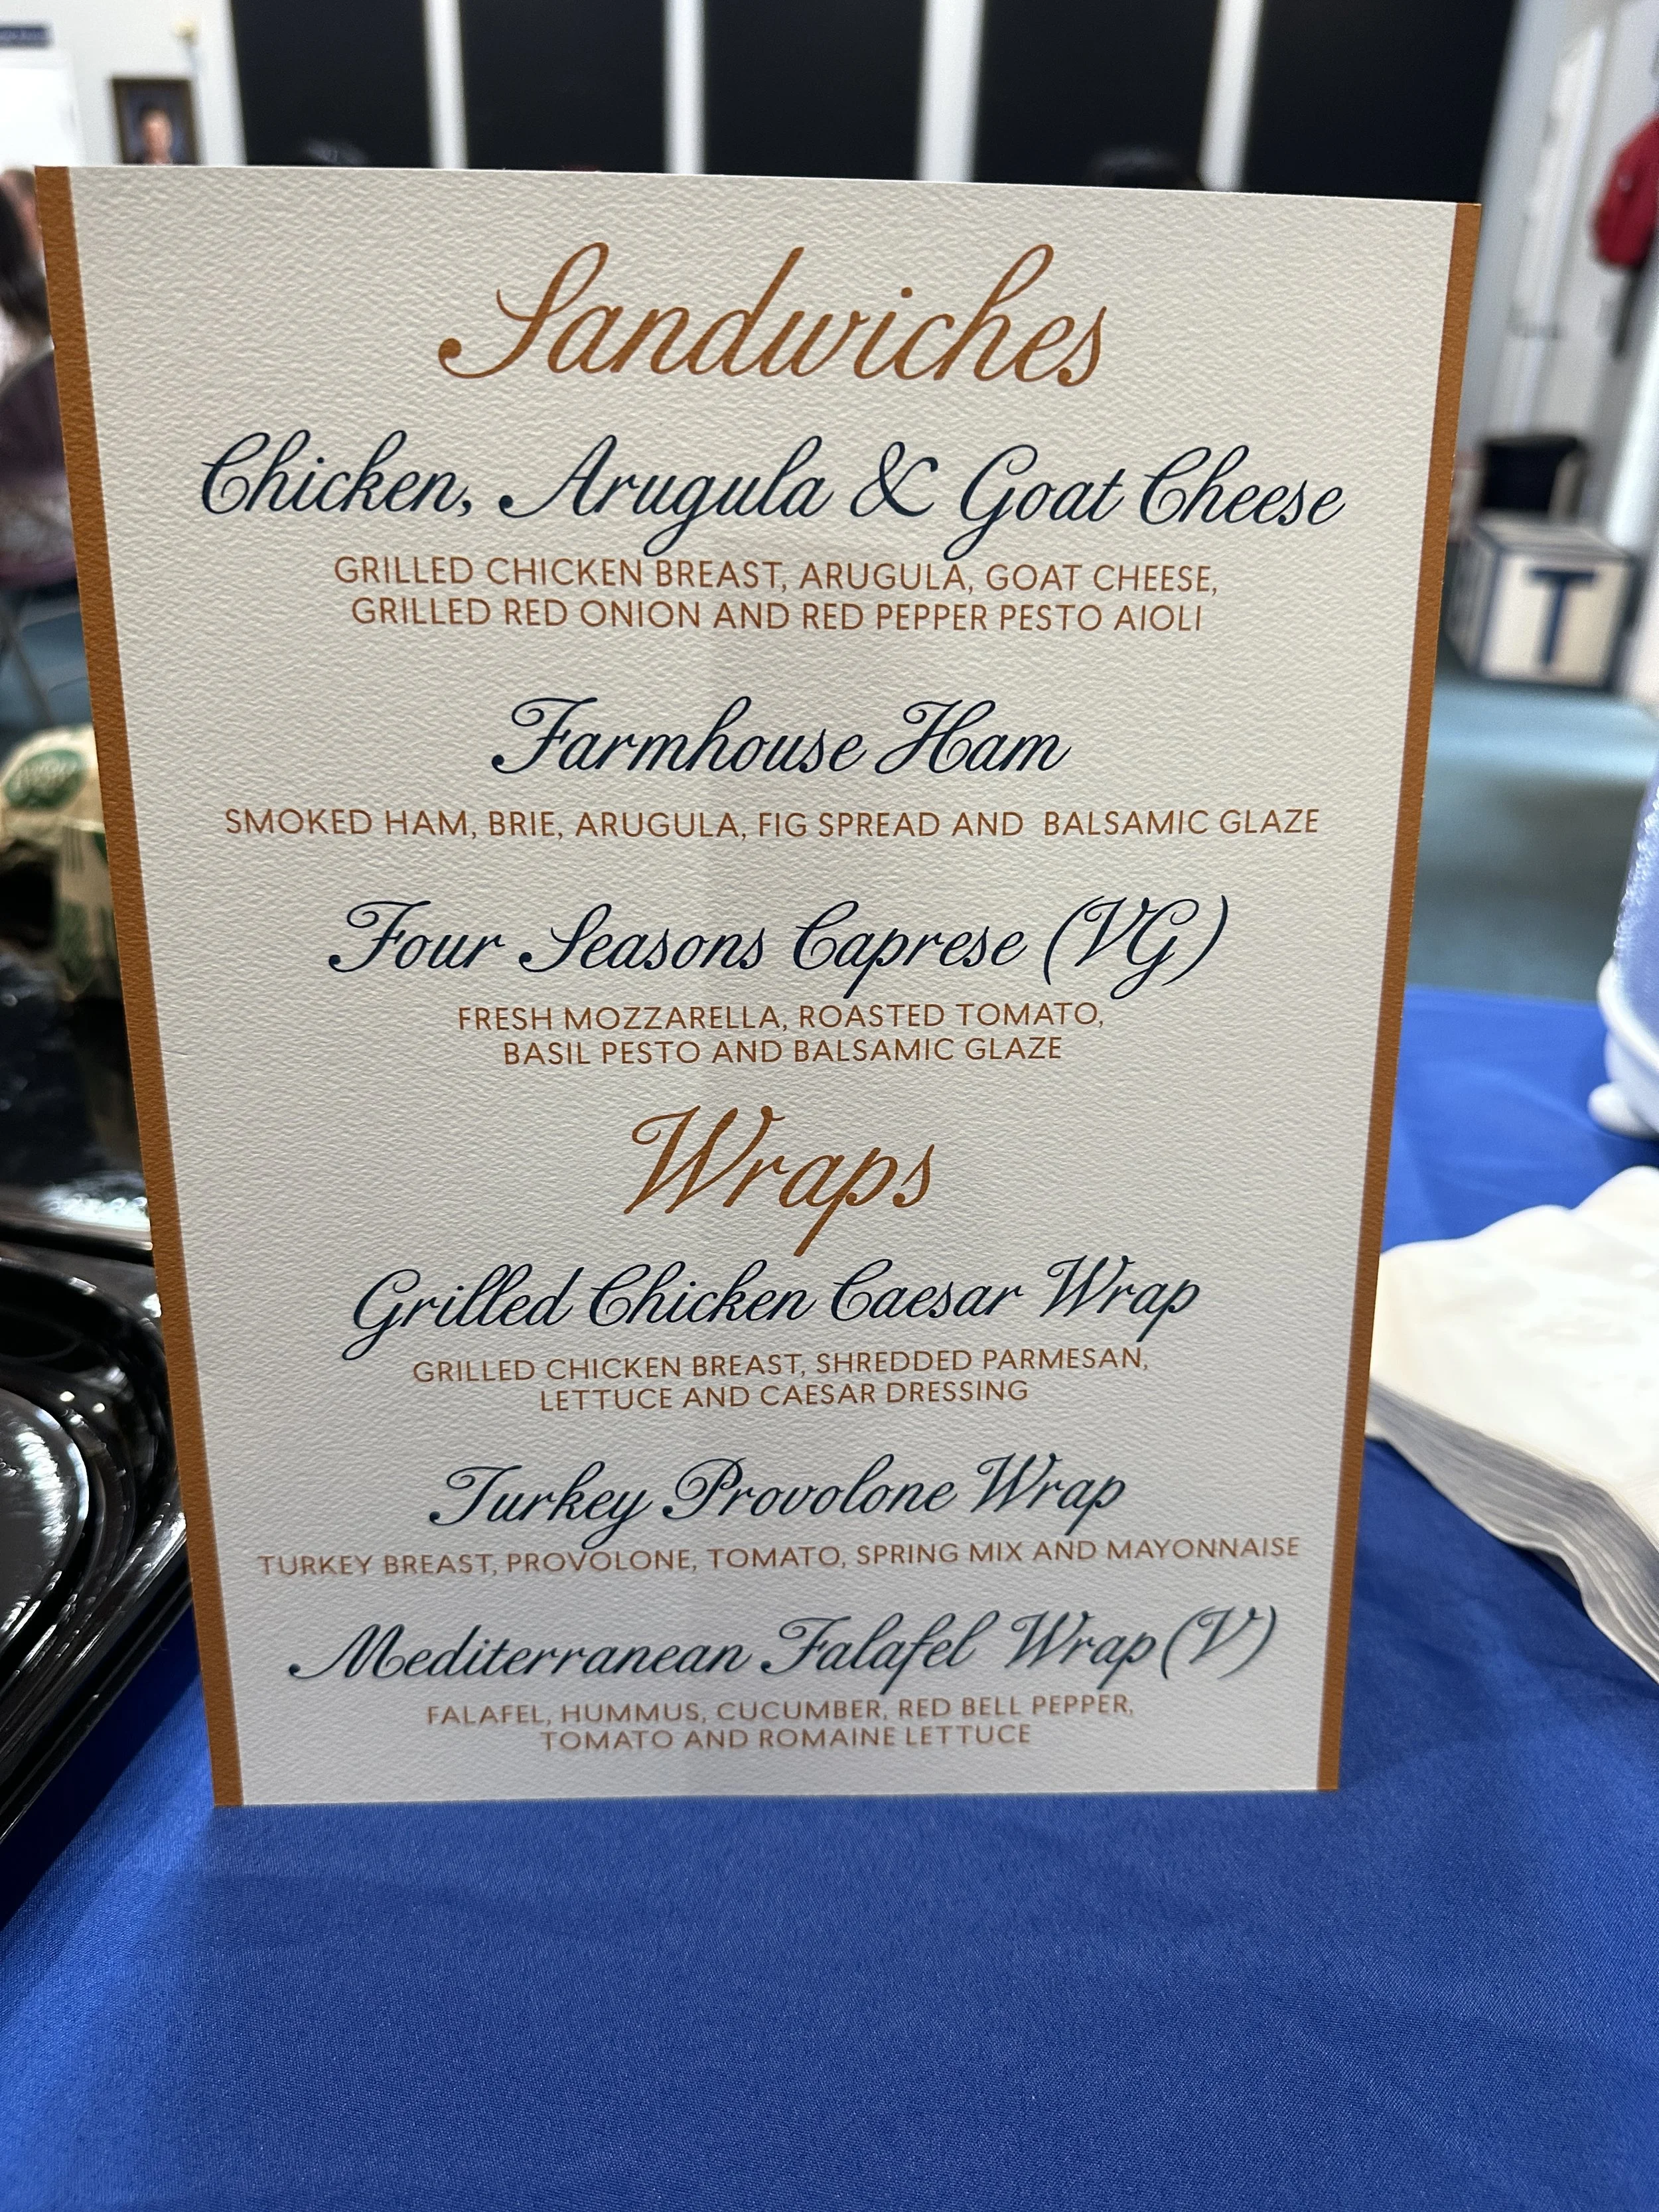 Sandwiches
Chicken, Arugula & Goat Cheese
GRILLED CHICKEN BREAST, ARUGULA, GOAT CHEESE,
GRILLED RED ONION AND RED PEPPER PESTO AIOLI
Farmhouse Ham
SMOKED HAM, BRIE, ARUGULA, FIG SPREAD AND BALSAMIC GLAZE
Four Seasons Caprese (VG)
FRESH MOZZARELLA, ROASTED TOMATO,
BASIL PESTO AND BALSAMIC GLAZE
Wraps
Grilled Chicken Caesar Wrap
GRILLED CHICKEN BREAST, SHREDDED PARMESAN,
LETTUCE AND CAESAR DRESSING
Turkey Provolone Wrap
TURKEY BREAST, PROVOLONE, TOMATO, SPRING MIX AND MAYONNAISE
Mediterranean Falafel Wrap (V)
FALAFEL, HUMMUS, CUCUMBER, RED BELL PEPPER,
TOMATO AND ROMAINE LETTUCE
T